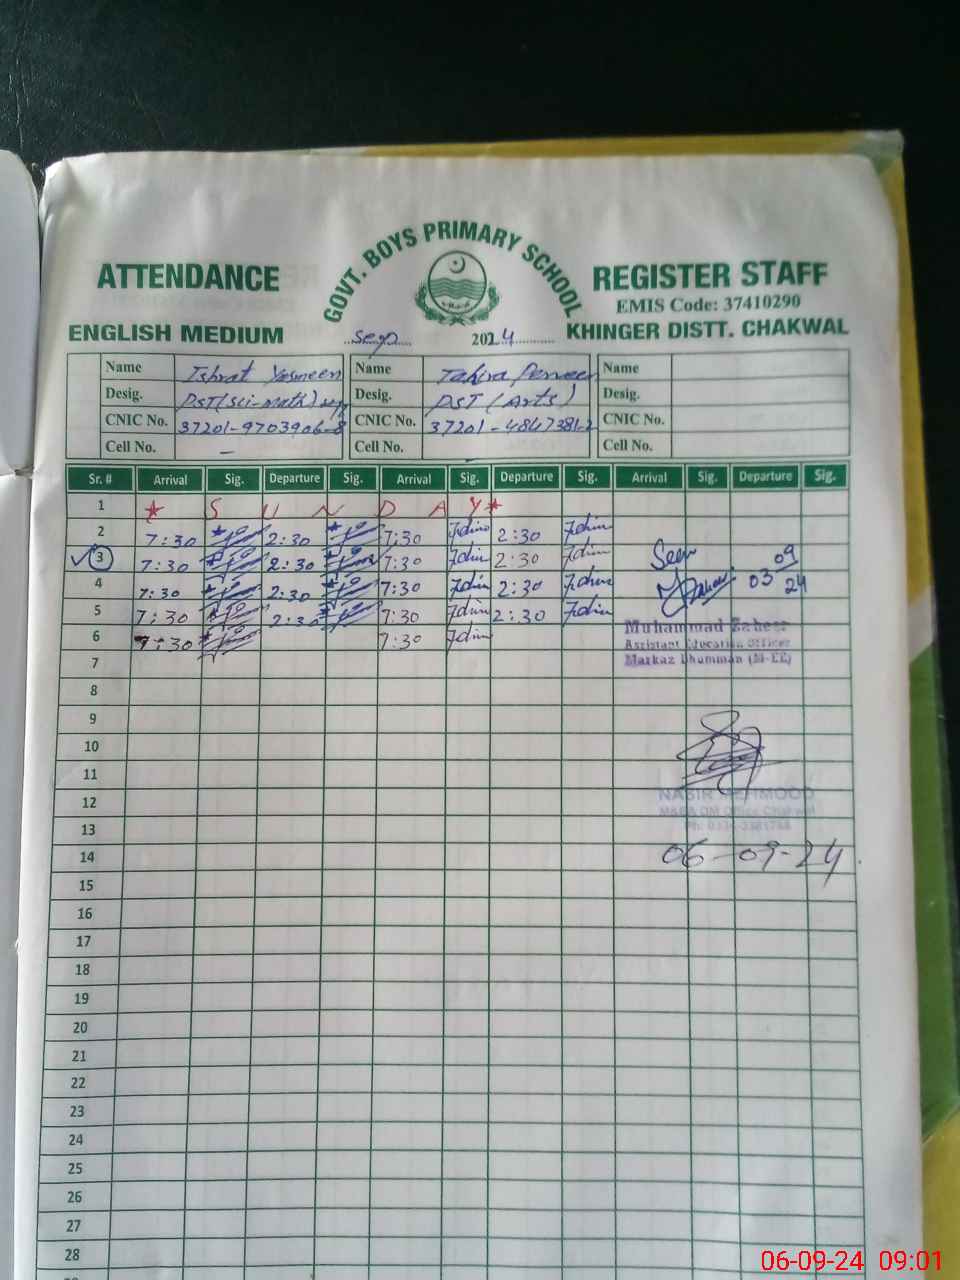 GOVT. BOYS PRIMARY SCHOOL
ATTENDANCE REGISTER STAFF
EMIS Code: 37410290
ENGLISH MEDIUM Sep 2024 KHINGER DISTT. CHAKWAL
Name Ishrat Yasmeen Name Tahira Perveen Name
Desig. PST(Sci-math) Desig. PST (Arts) Desig.
CNIC No. 37201-9703906-8 CNIC No. 37201-4847381-2 CNIC No.
Cell No. - Cell No. - Cell No.
Sr. # Arrival Sig. Departure Sig. Arrival Sig. Departure Sig. Arrival Sig. Departure Sig.
1 * S U N D A Y *
2 7:30 2:30 7:30 2:30
3 7:30 2:30 7:30 2:30 Seen 03 09 24
4 7:30 2:30 7:30 2:30
5 7:30 2:30 7:30 2:30
Muhammad Zaheer
6 7:30 7:30
Assistant Education Officer
7 Markaz Dhumman (M-EE)
8
9
10
11
12 NASIR MEHMOOD
M&EA DM Office Chakwal
13
14 06-09-24
15
16
17
18
19
20
21
22
23
24
25
26
27
28
06-09-24 09:01